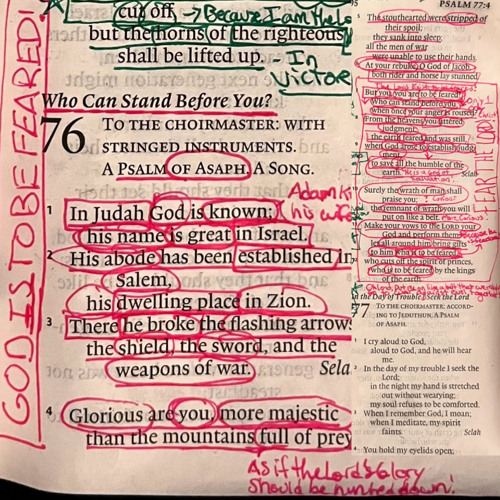 cut off → Because I am the Lo
but the horns of the righteous
shall be lifted up. - In
Victor
Who Can Stand Before You?
76 TO THE CHOIRMASTER: WITH
STRINGED INSTRUMENTS.
A PSALM OF ASAPH. A SONG.
Adam K
1 In Judah God is known; (his wife
his name is great in Israel.
2 His abode has been established in
Salem,
his dwelling place in Zion.
3 There he broke the flashing arrows
the shield, the sword, and the
weapons of war. Sela
4 Glorious are you, more majestic
than the mountains full of prey
As if the Lord's Glory
Should be hunted down!
GOD IS TO BE FEARED!
PSALM 77:4
5 The stouthearted were stripped of
their spoil;
they sank into sleep;
all the men of war
were unable to use their hands.
6 At your rebuke, O God of Jacob,
both rider and horse lay stunned.
But you, you are to be feared!
Who can stand before you
when once your anger is roused?
From the heavens you uttered
judgment;
the earth feared and was still,
when God arose to establish judg-
ment,
to save all the humble of the
earth. Selah
Surely the wrath of man shall
praise you;
the remnant of wrath you will
put on like a belt.
Make your vows to the LORD your
God and perform them;
let all around him bring gifts
to him who is to be feared,
who cuts off the spirit of princes,
who is to be feared by the kings
of the earth.
FEAR THE LORD
In the Day of Trouble I Seek the Lord
77 TO THE CHOIRMASTER: ACCORD-
ING TO JEDUTHUN. A PSALM
OF ASAPH.
1 I cry aloud to God,
aloud to God, and he will hear
me.
2 In the day of my trouble I seek the
Lord;
in the night my hand is stretched
out without wearying;
my soul refuses to be comforted.
3 When I remember God, I moan;
when I meditate, my spirit
faints. Selah
You hold my eyelids open;